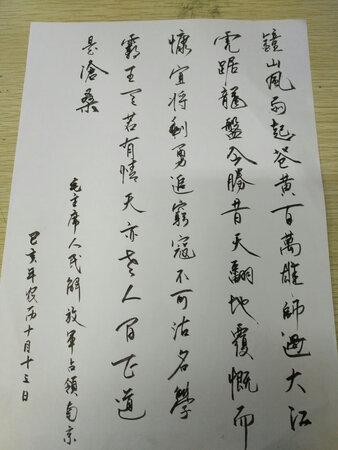 鐘山風雨起蒼黃百萬雄師過大江
虎踞龍盤今勝昔天翻地覆慨而
慷宜將剩勇追窮寇不可沽名學
霸王天若有情天亦老人間正道
是滄桑
毛主席人民解放軍占領南京
己亥年农历十月十三日